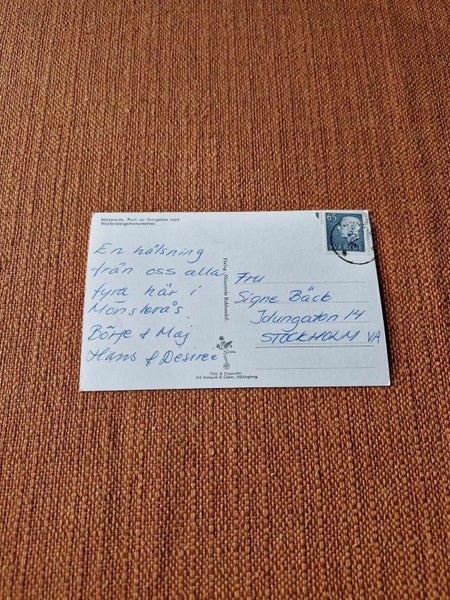 Mönsterås. Parti av Storgatan med
Wallenbergsmonumentet.
En hälsning
från oss alla
fyra här i
Mönsterås.
Börje & Maj
Hans & Desiree
Förlag: Mönsterås Bokhandel.
Foto B. Alexander
A/B Almquist & Cöster, Hälsingborg
65
SVERIGE
Fru
Signe Bäck
Idungatan 14
STOCKHOLM VA